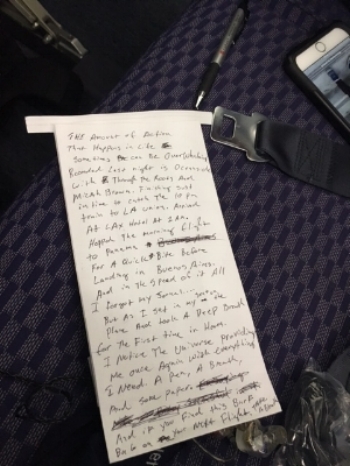 The Amount of Action
That Happens in Life
Sometimes can be Overwhelming
Recorded last night in Oceanside
With Through the Roots And
Micah Brown. Finishing just
in time to catch the
train to LA Union. Arrived
At LAX Hotel At 2 Am.
Hopped The morning flight
to Panama
For A Quick Bite Before
Landing in Buenos Aires.
And in the Speed of it All
I forgot my Journal...
But As I set in my
Plane And took A Deep Breath
for The First time in Hours.
I Notice The Universe providing
Me once Again with everything
I Need. A Pen, A Breath,
And Some paper.
And if you Find this Barf
Bag on your Next Flight